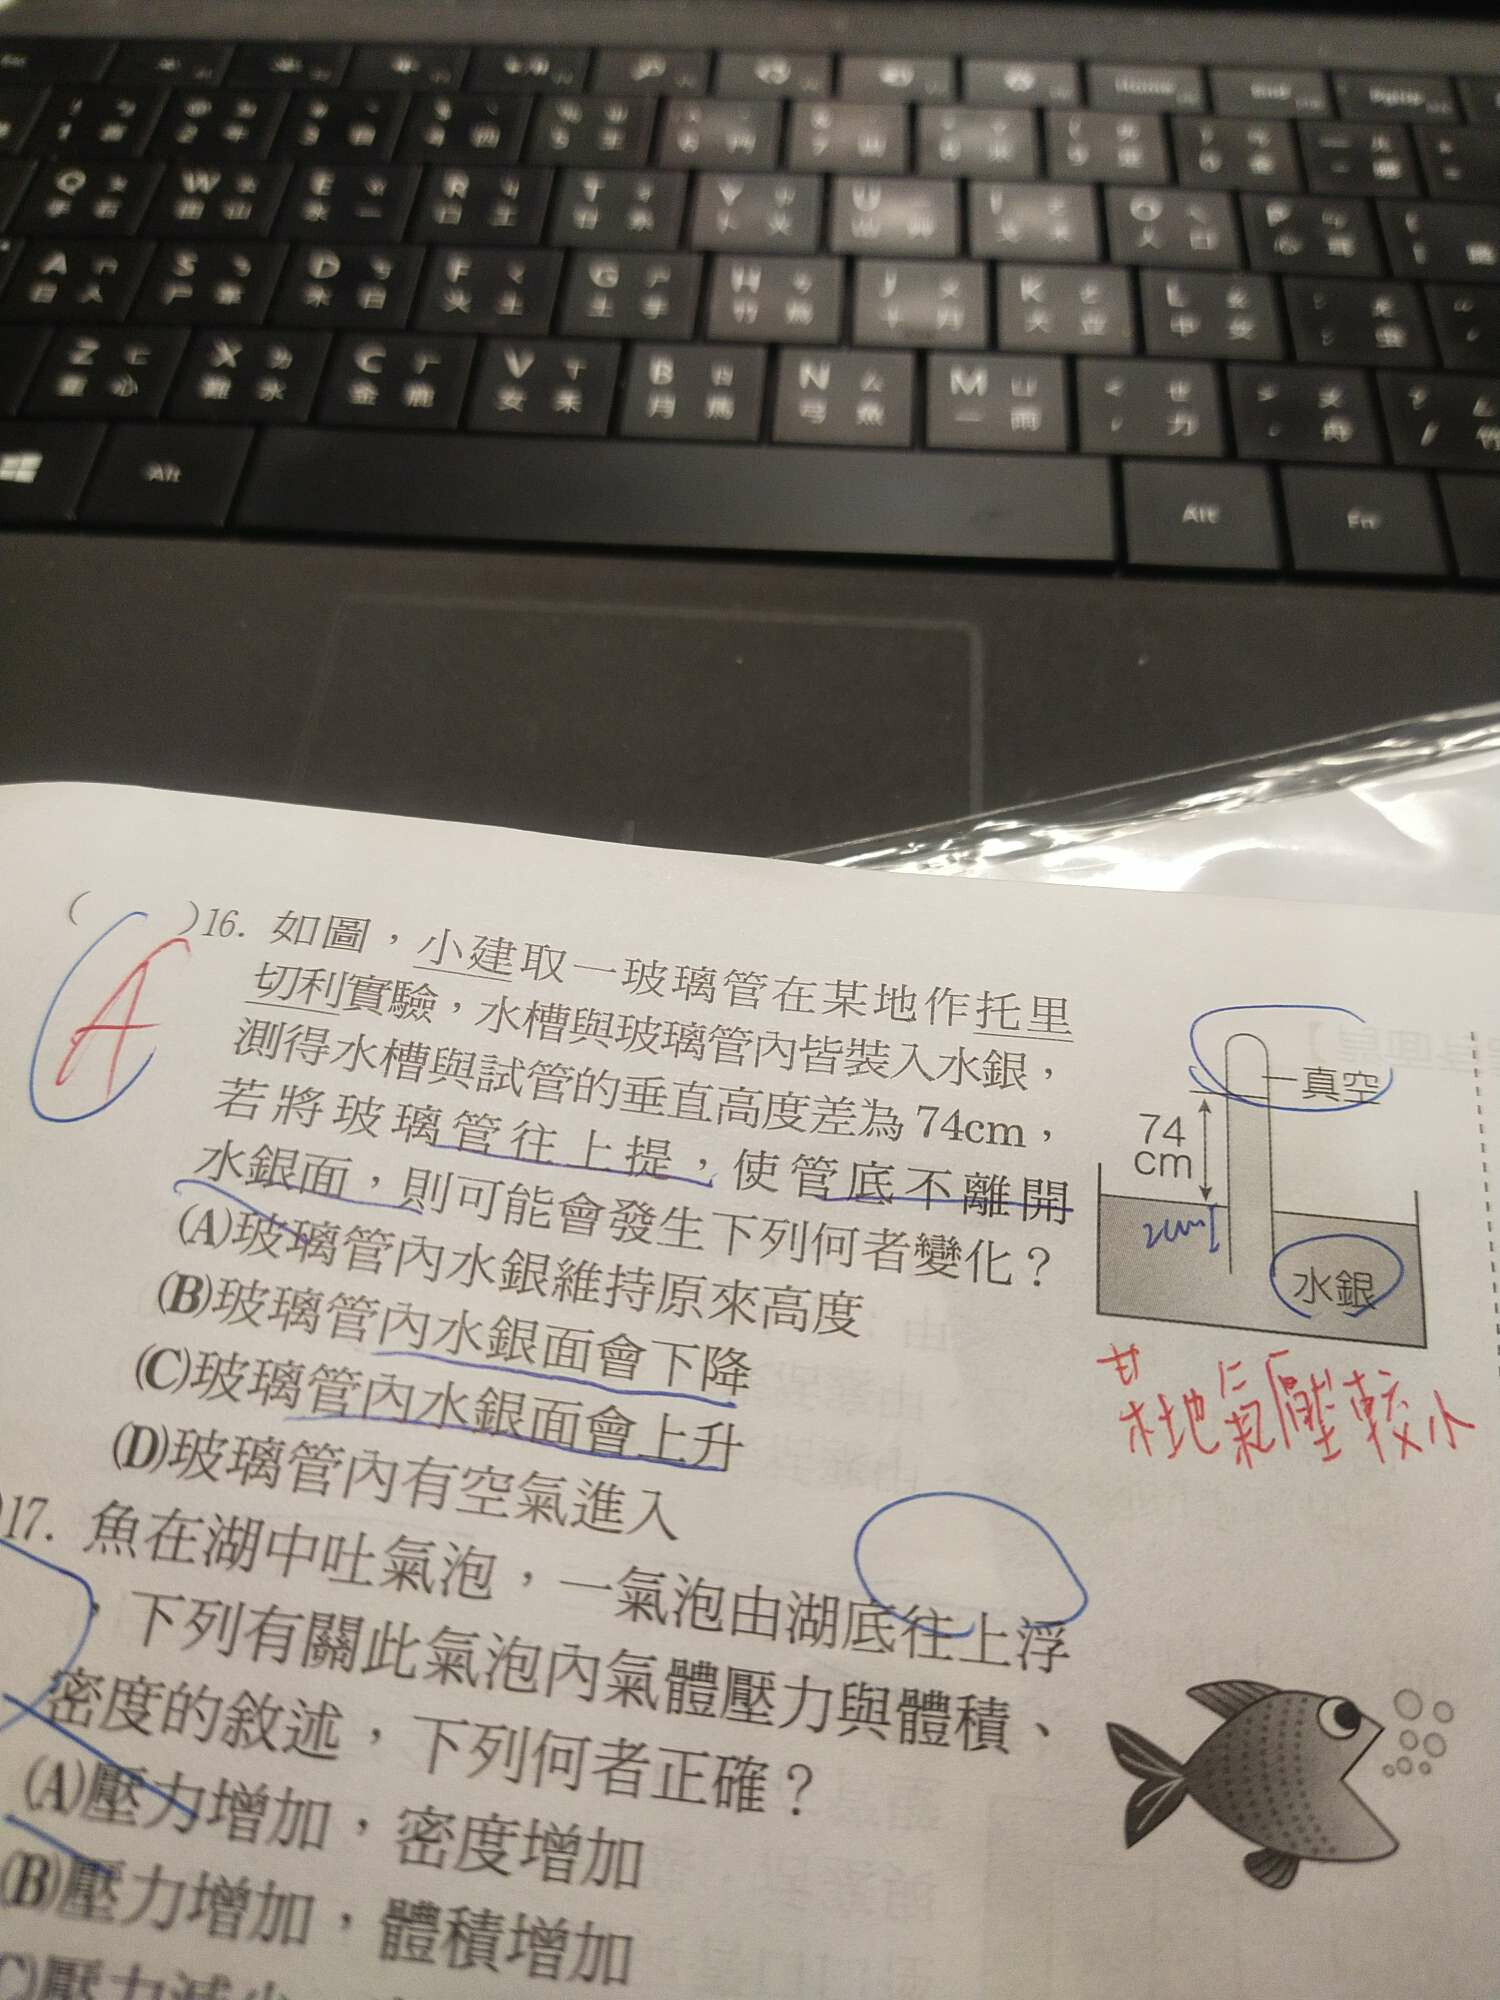 Home
End
PgUp
Q
手
W
田
山
E
水
R
口
T
廿
Y
卜
火
U
山
O
人
口
P
心
A
日
人
S
尸
D
木
日
F
火
土
G
土
手
H
竹
J
十
月
K
大
L
中
女
Z
重
心
X
難
水
C
金
V
女
B
月
N
弓
魚
M
一
雨
力
Alt
Alt
Fn
( )16. 如圖，小建取一玻璃管在某地作托里
切利實驗，水槽與玻璃管內皆裝入水銀，
測得水槽與試管的垂直高度差為74cm，
若將玻璃管往上提，使管底不離開
水銀面，則可能會發生下列何者變化？
(A)玻璃管內水銀維持原來高度
(B)玻璃管內水銀面會下降
(C)玻璃管內水銀面會上升
(D)玻璃管內有空氣進入
A
真空
74
cm
2cm
水銀
某地氣壓較小
)17. 魚在湖中吐氣泡，一氣泡由湖底往上浮
，下列有關此氣泡內氣體壓力與體積、
密度的敘述，下列何者正確？
(A)壓力增加，密度增加
(B)壓力增加，體積增加
(C)壓力減少